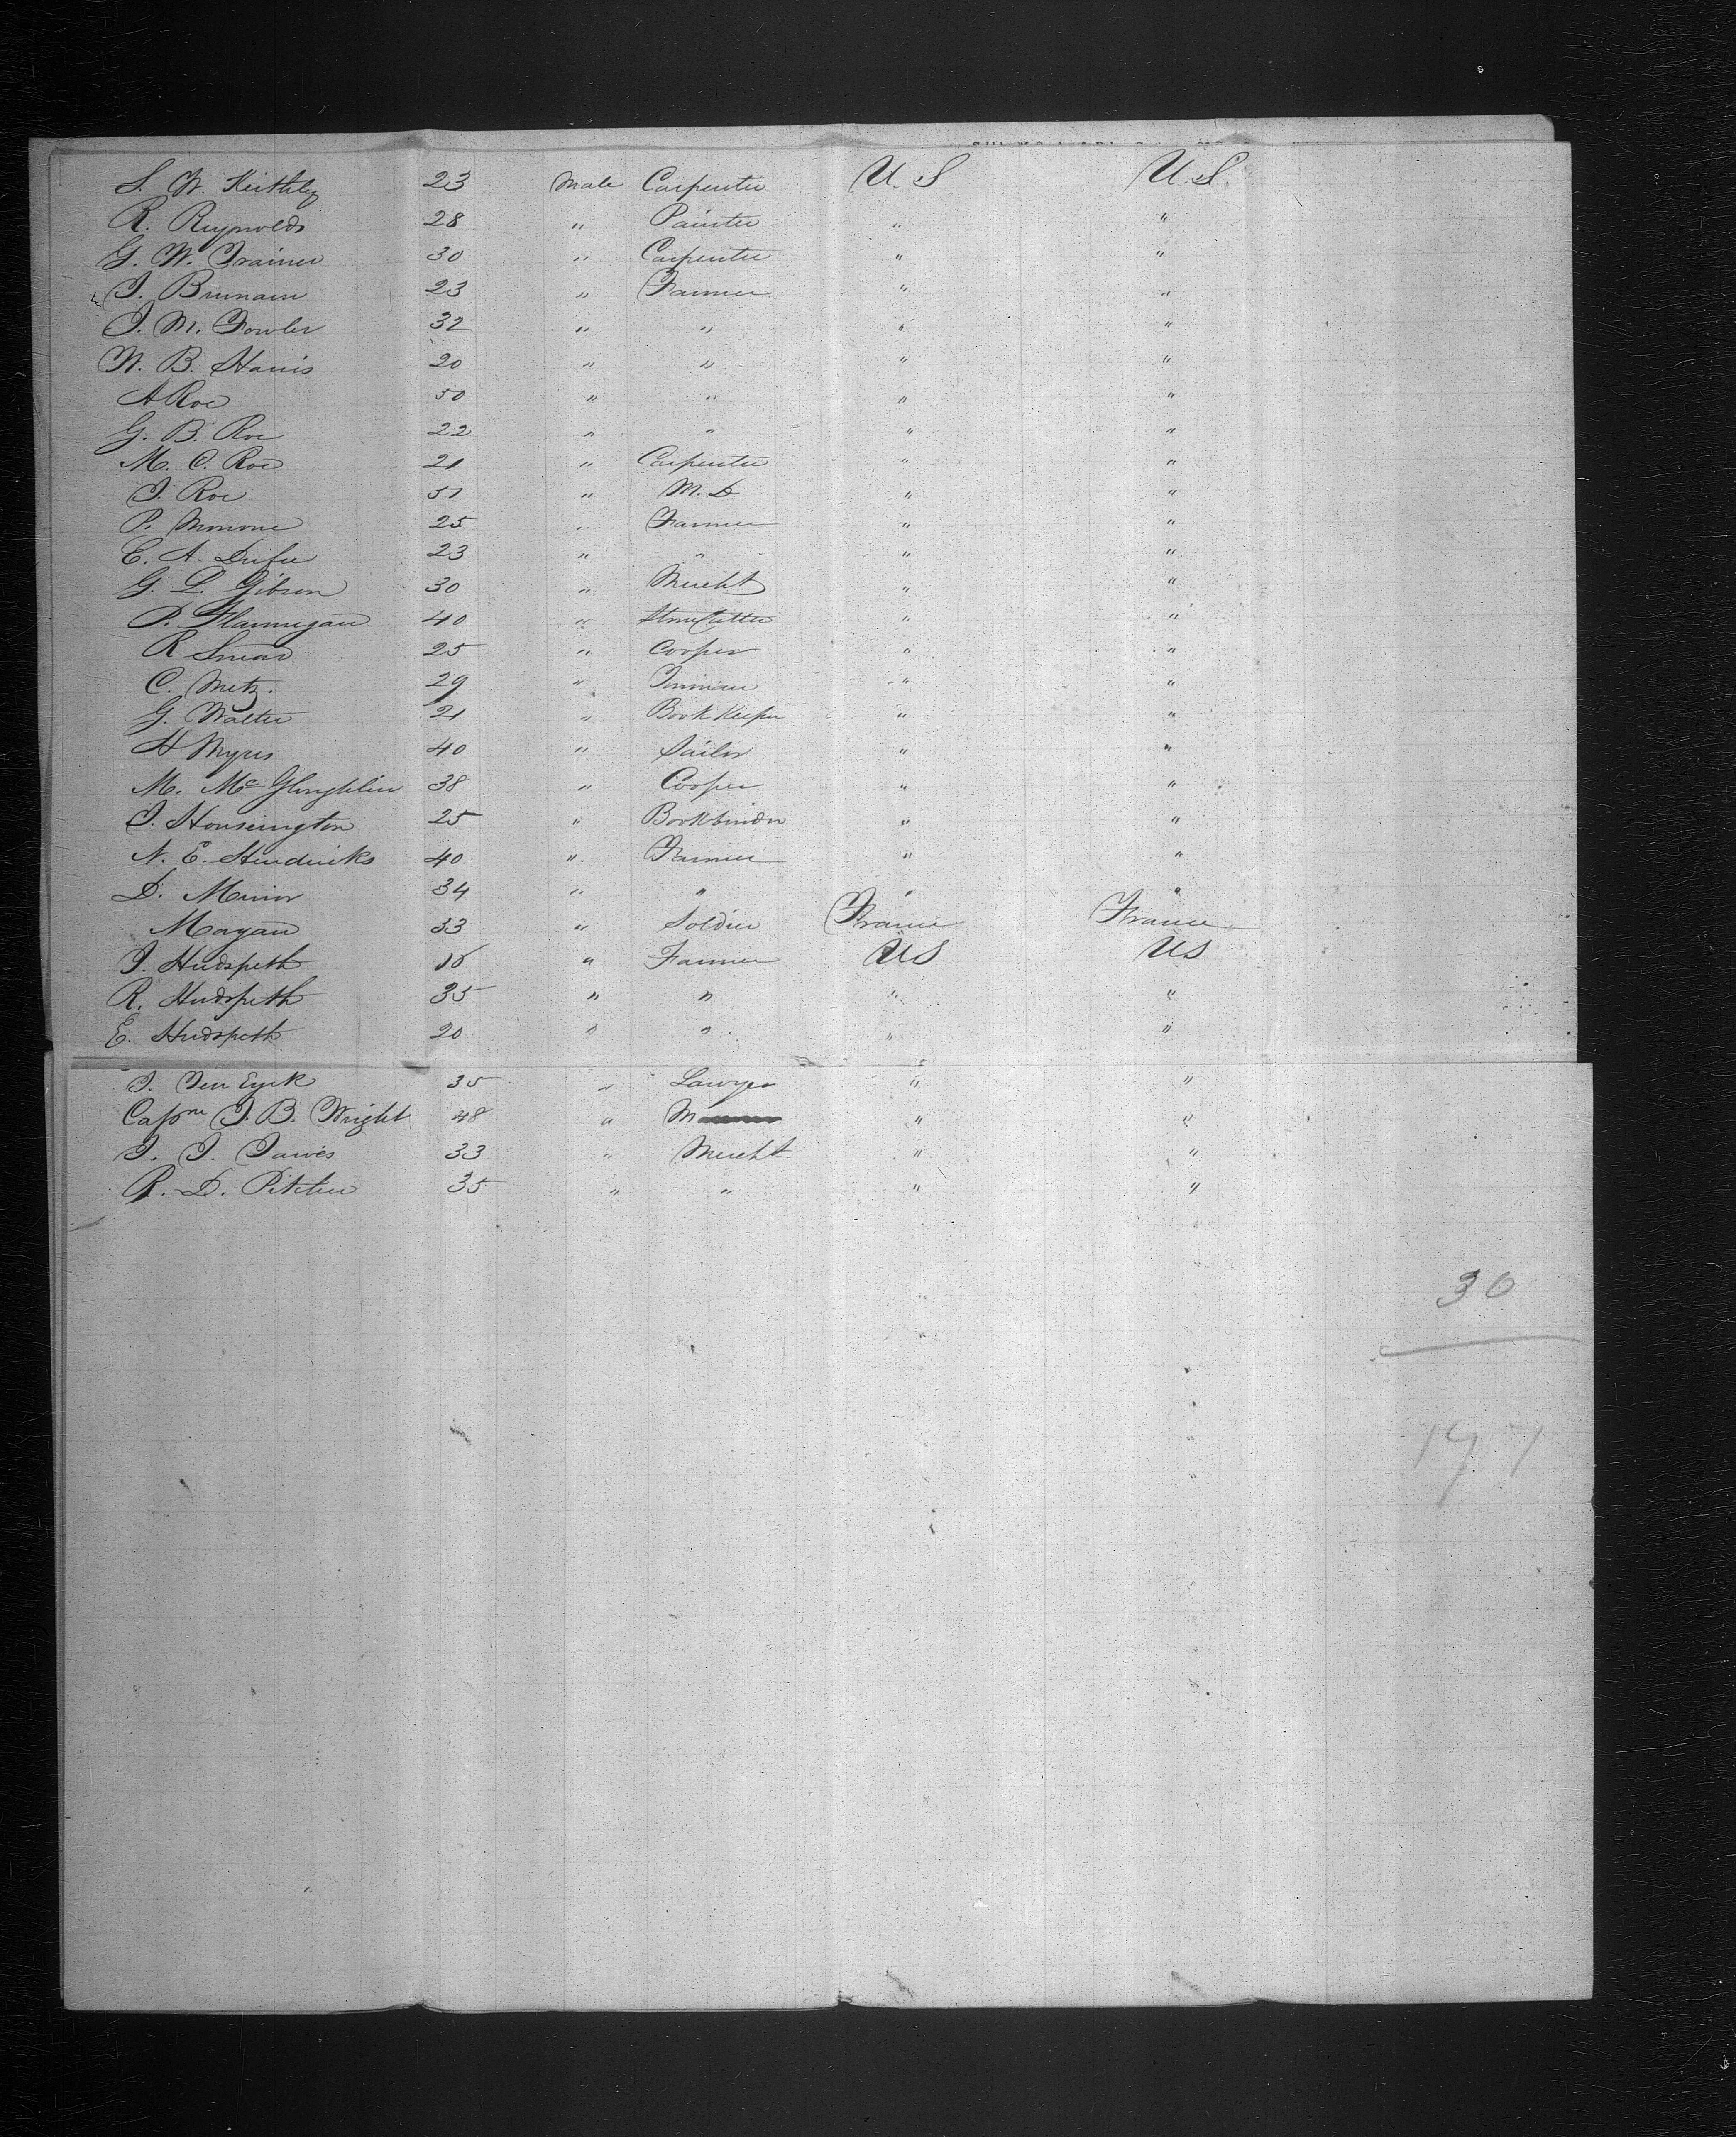 S. W. Keithley 23 Male Carpenter U. S U. S.
R. Reynolds 28 " Painter " "
G. W. Trainer 30 " Carpenter " "
J. 23 " Farmer " "
J. M. Fowler 32 " " " "
W. B. Harris 20 " " " "
A Roe 50 " " " "
G. B. Roe 22 " " " "
M. C. Roe 21 " Carpenter " "
J. Roe 51 " M. D " "
P. 25 " Farmer " "
C. A. 23 " " " "
G. L. Gibson 30 " Mercht " "
P. Flannegan 40 " Stone Cutter " "
R 25 " Cooper " "
C. Metz. 29 " Tinman " "
G. Walter 21 " Book Keeper " "
H Myers 40 " Sailor " "
M. Mc Gloughlin 38 " Cooper " "
J. Housington 25 " Bookbinder " "
N. E. Hendricks 40 " Farmer " "
D. Minor 34 " " " "
Mayan 33 " Soldier France France
J. Hudspeth 16 " Farmer US US
R. Hudspeth 35 " " " "
E. Hudspeth 20 " " " "
J. Ten Eyck 35 " Lawyer " "
Capne J. B. Wright 48 " M " "
J. J. 33 " Mercht " "
R. D. 35 " " " "
30